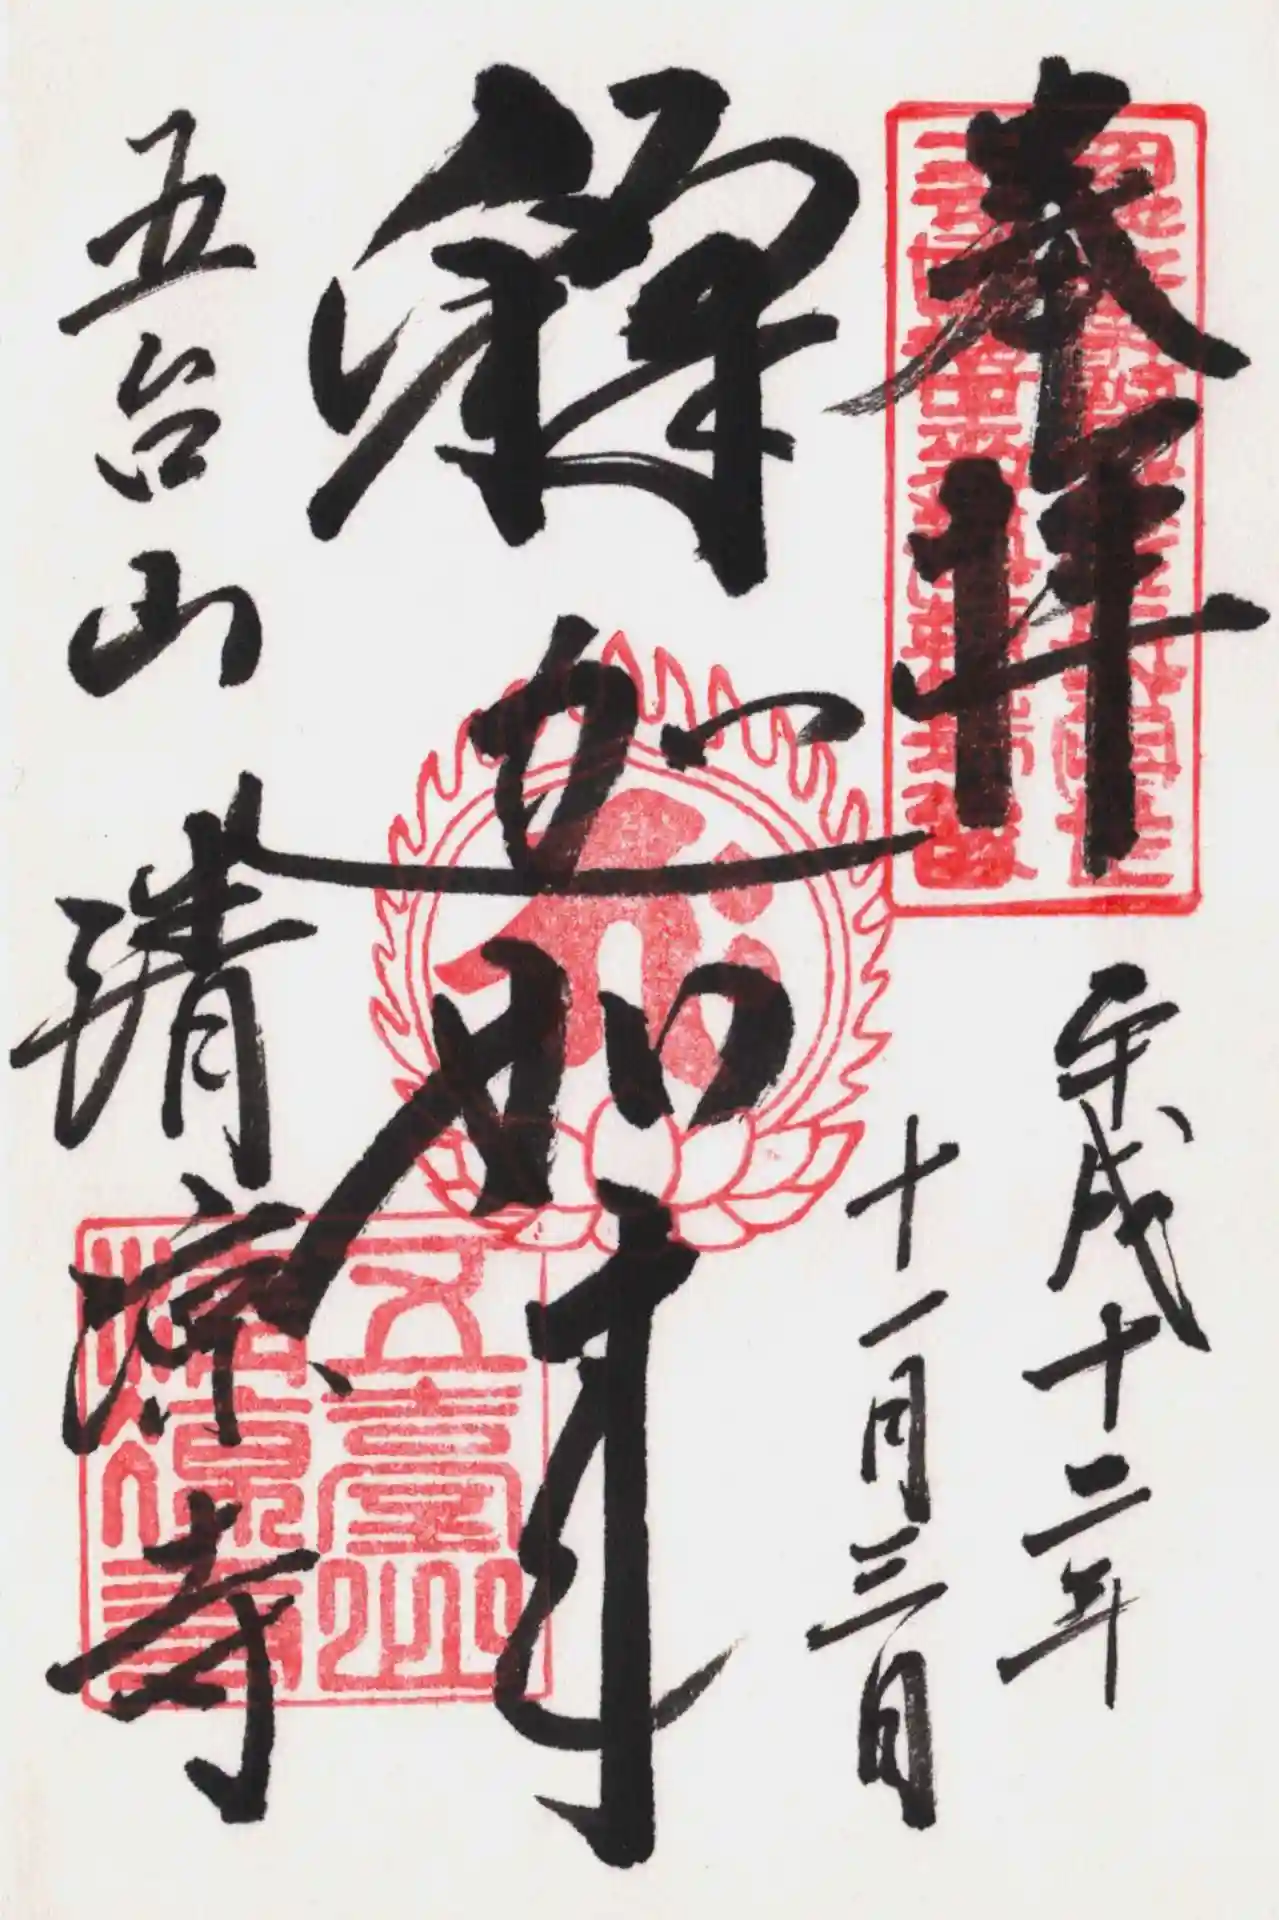 奉拝
平成十二年
十一月三日
釋迦如来
五台山 清凉寺
五臺山
清凉寺